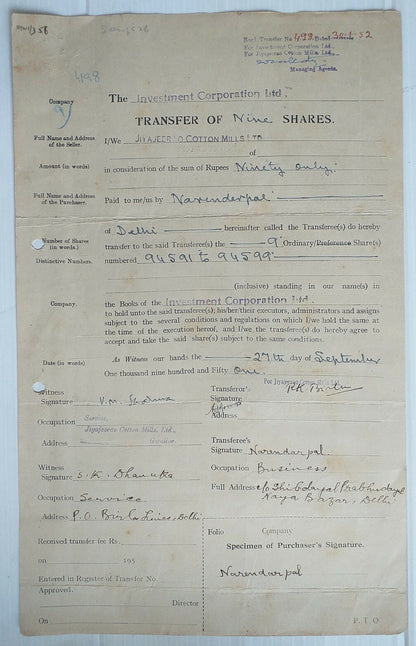 Regd. Transfer No 498 Dated 30.1.52
For Investment Corporation Ltd.,
For Jiyajeerao Cotton Mills Ltd.,
Managing Agents.
498
Company
The Investment Corporation Ltd.
TRANSFER OF Nine SHARES.
Full Name and Address
of the Seller.
I/We JIYAJEERAO COTTON MILLS LTD
of
Amount (in words)
in consideration of the sum of Rupees Ninety only.
Full Name and Address
of the Purchaser.
Paid to me/us by Narenderpal
of Delhi hereinafter called the Transferee(s) do hereby
Number of Shares
(in words.)
transfer to the said Transferee(s) the 9 Ordinary/Preference Share(s)
Distinctive Numbers.
numbered 94591 to 94599
(inclusive) standing in our name(s) in
Company.
the Books of the Investment Corporation Ltd.
to hold unto the said transferee(s); his/her/their executors, administrators and assigns
subject to the several conditions and regulations on which I/we hold the same at
the time of the execution hereof, and I/we the transferee(s) do hereby agree to
accept and take the said share(s) subject to the same conditions.
Date (in words)
As Witness our hands the 27th day of September
One thousand nine hundred and Fifty One.
For Jiyajeerao Cotton Mills Ltd
Witness
Signature V.M. Sharma
Transferor's
Signature
Address
Occupation Service,
Jiyajeerao Cotton Mills, Ltd.,
Address Gwalior.
Transferee's
Signature Narendarpal
Witness
Signature S.K. Dhanuka
Occupation Business
Full Address c/o Shib Dayal Prabhu dayal
Naya Bazar, Delhi
Occupation Service
Address P.O. Birla Lines, Delhi
Received transfer fee Rs.
Folio Company
on 195
Specimen of Purchaser's Signature.
Entered in Register of Transfer No.
Narendarpal
Approved.
Director
On
P. T O